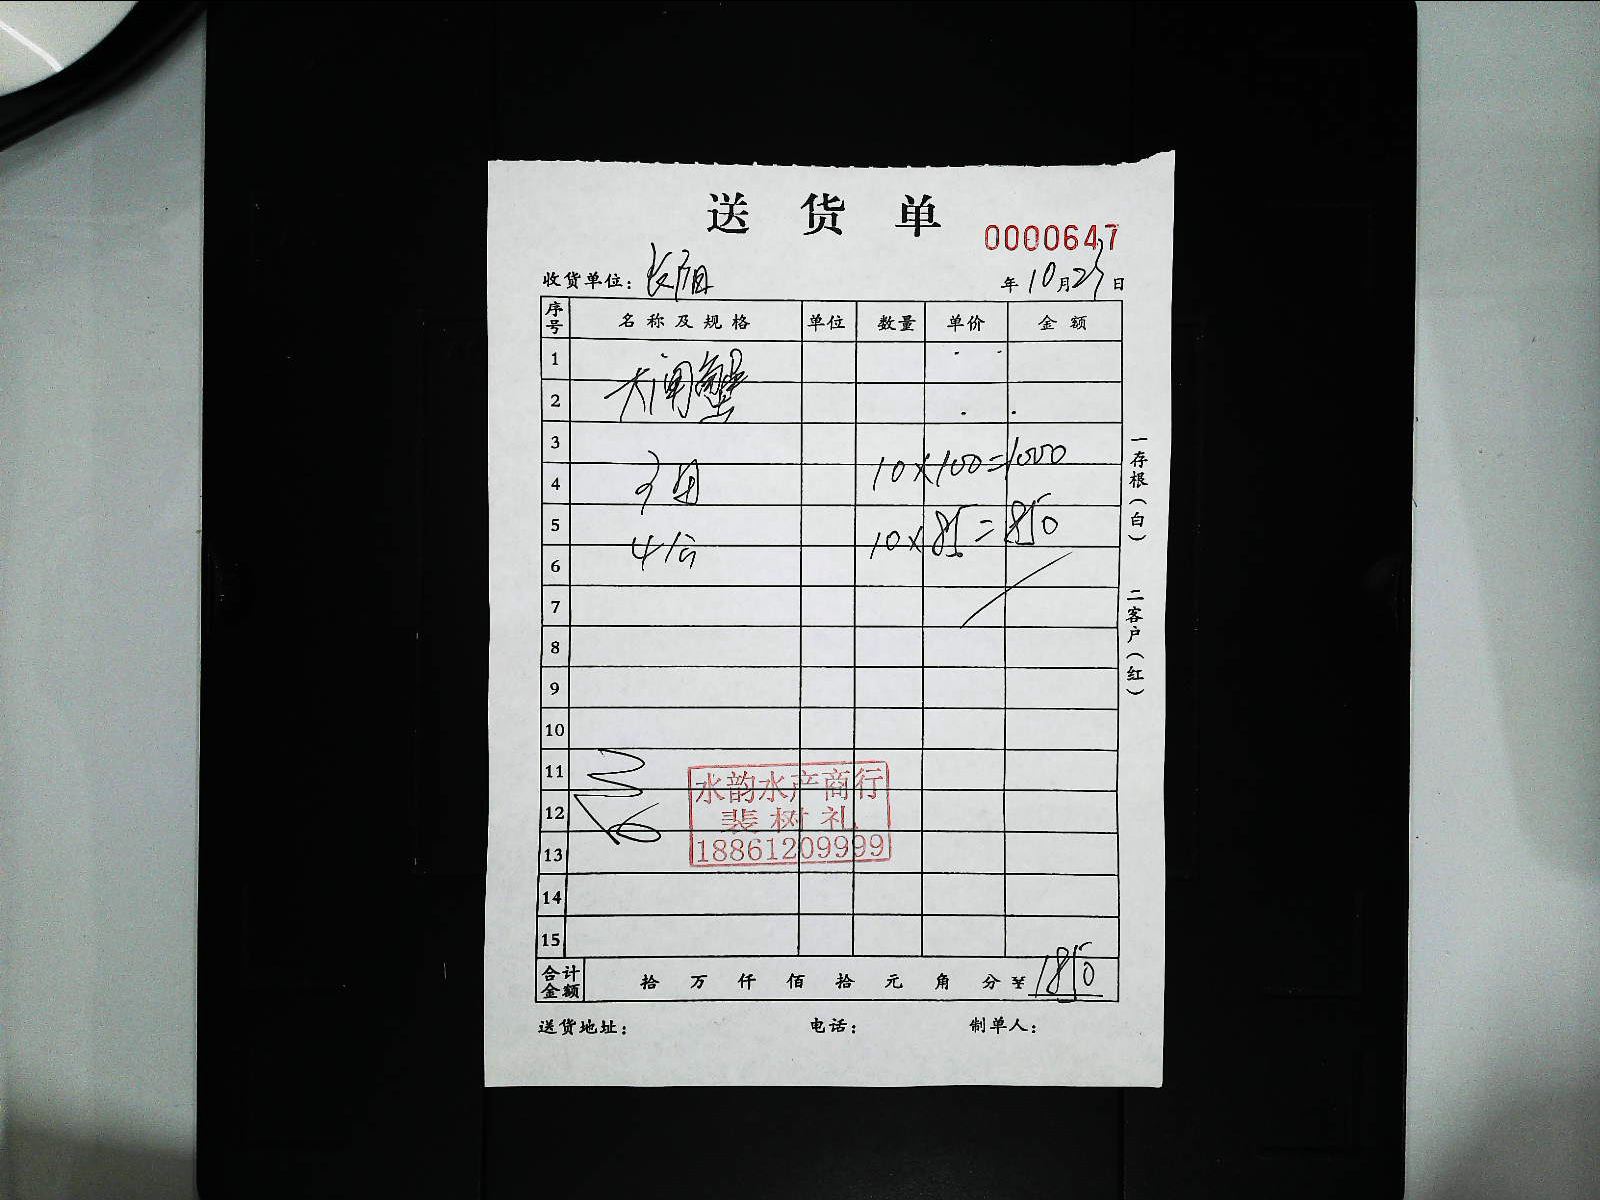 送货单
0000647
收货单位：长阳 年10月25日
序号 名称及规格 单位 数量 单价 金额
1
大闸蟹
2
3
3母 10×100=1000
4
5
4公 10×85=850
6
7
8
9
10
11
12
13
14
15
水韵水产商行
裴树礼
18861209999
合计金额 拾 万 仟 佰 拾 元 角 分 ¥1850
送货地址： 电话： 制单人：
一存根（白） 二客户（红）